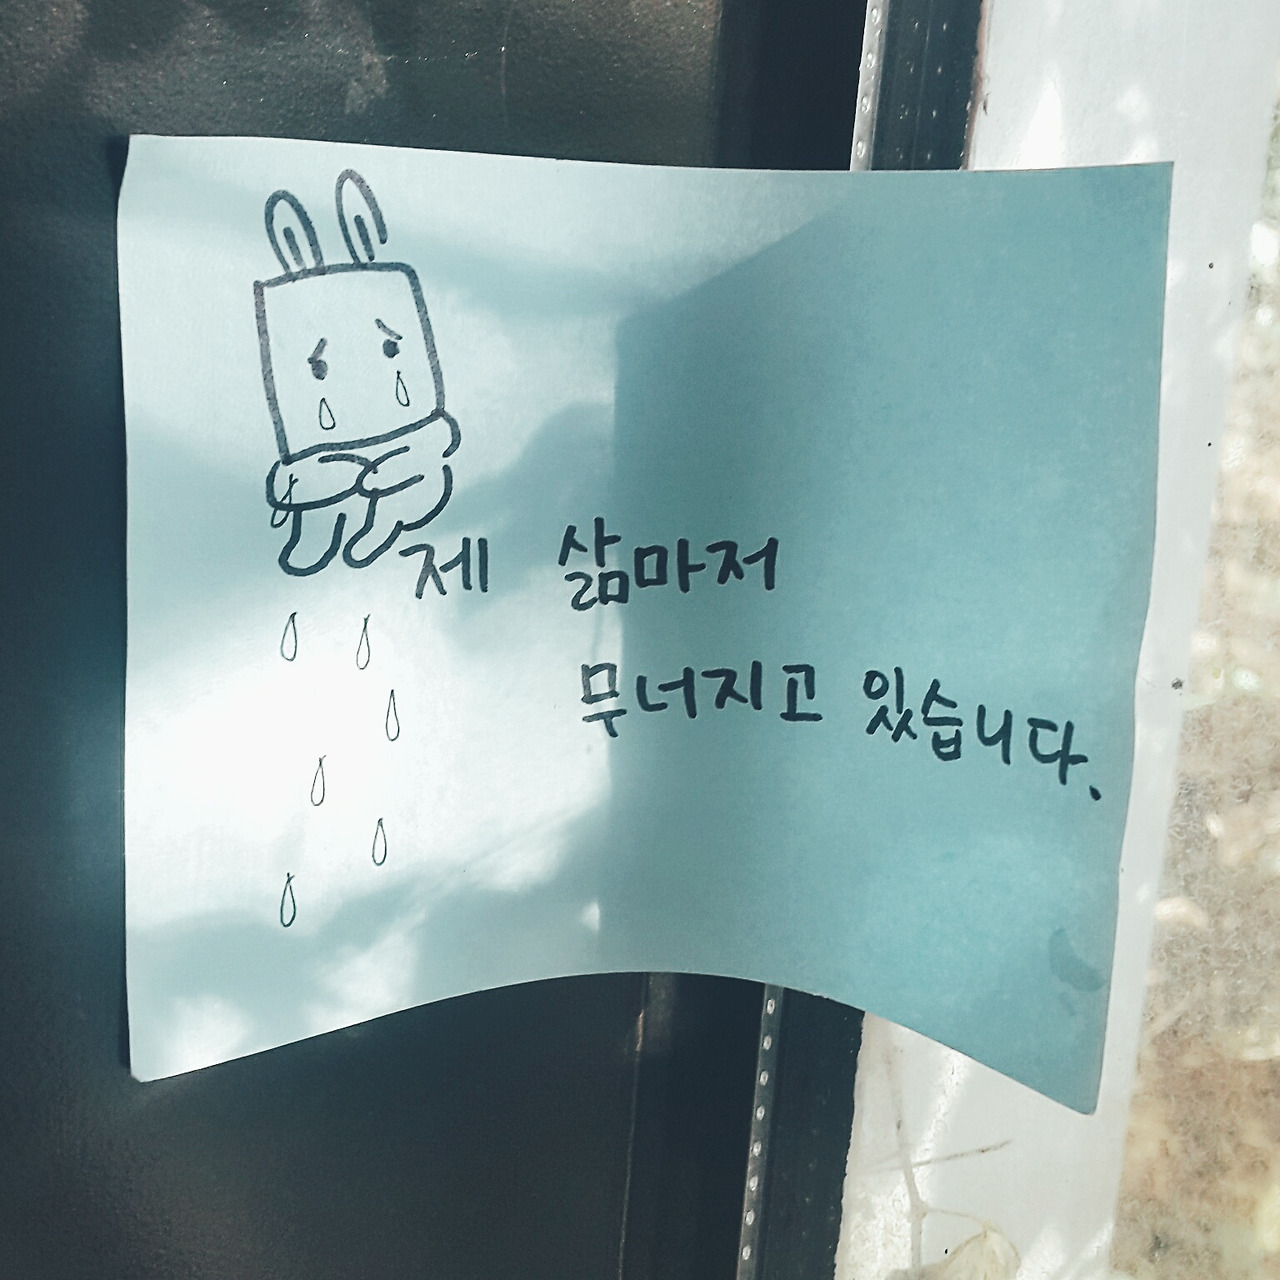 제 삶마저
무너지고 있습니다.